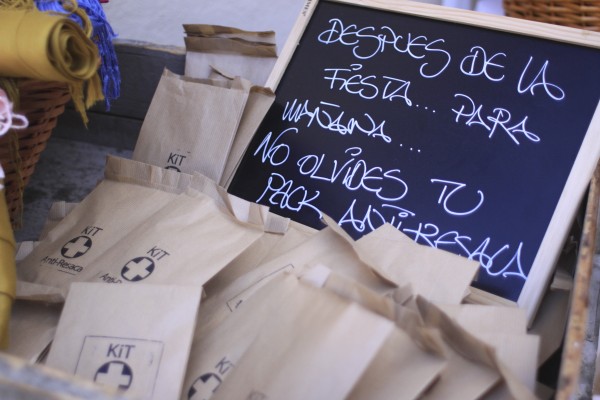 DESPUES DE LA
FIESTA... PARA
MAÑANA...
NO OLVIDES TU
PACK ANTI-RESACA
KiT
KiT
Anti-Resaca
KiT
KiT
KiT